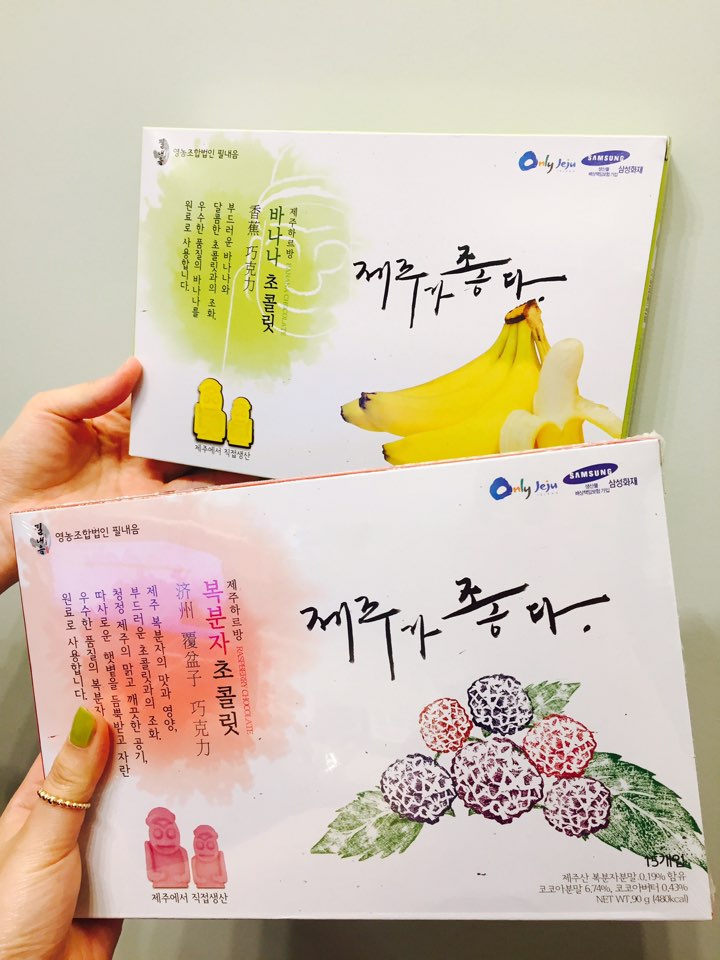 필내음
영농조합법인 필내음
Only Jeju
SAMSUNG
생산물
배상책임보험 가입
삼성화재
제주하르방
바나나 초콜릿
BANANA CHOCOLATE
香蕉 巧克力
부드러운 바나나와
달콤한 초콜릿과의 조화.
우수한 품질의 바나나를
원료로 사용합니다.
제주가 좋다.
제주에서 직접생산
필내음
영농조합법인 필내음
Only Jeju
SAMSUNG
생산물
배상책임보험 가입
삼성화재
제주하르방
복분자 초콜릿
RASPBERRY CHOCOLATE
济州 覆盆子 巧克力
제주 복분자의 맛과 영양,
부드러운 초콜릿과의 조화.
청정 제주의 맑고 깨끗한 공기,
따사로운 햇볕을 듬뿍받고 자란
우수한 품질의 복분자
원료로 사용합니다.
제주가 좋다.
제주에서 직접생산
15개입
제주산 복분자분말 0.19% 함유
코코아분말 6.74%, 코코아버터 0.43%
NET WT.90 g (480kcal)